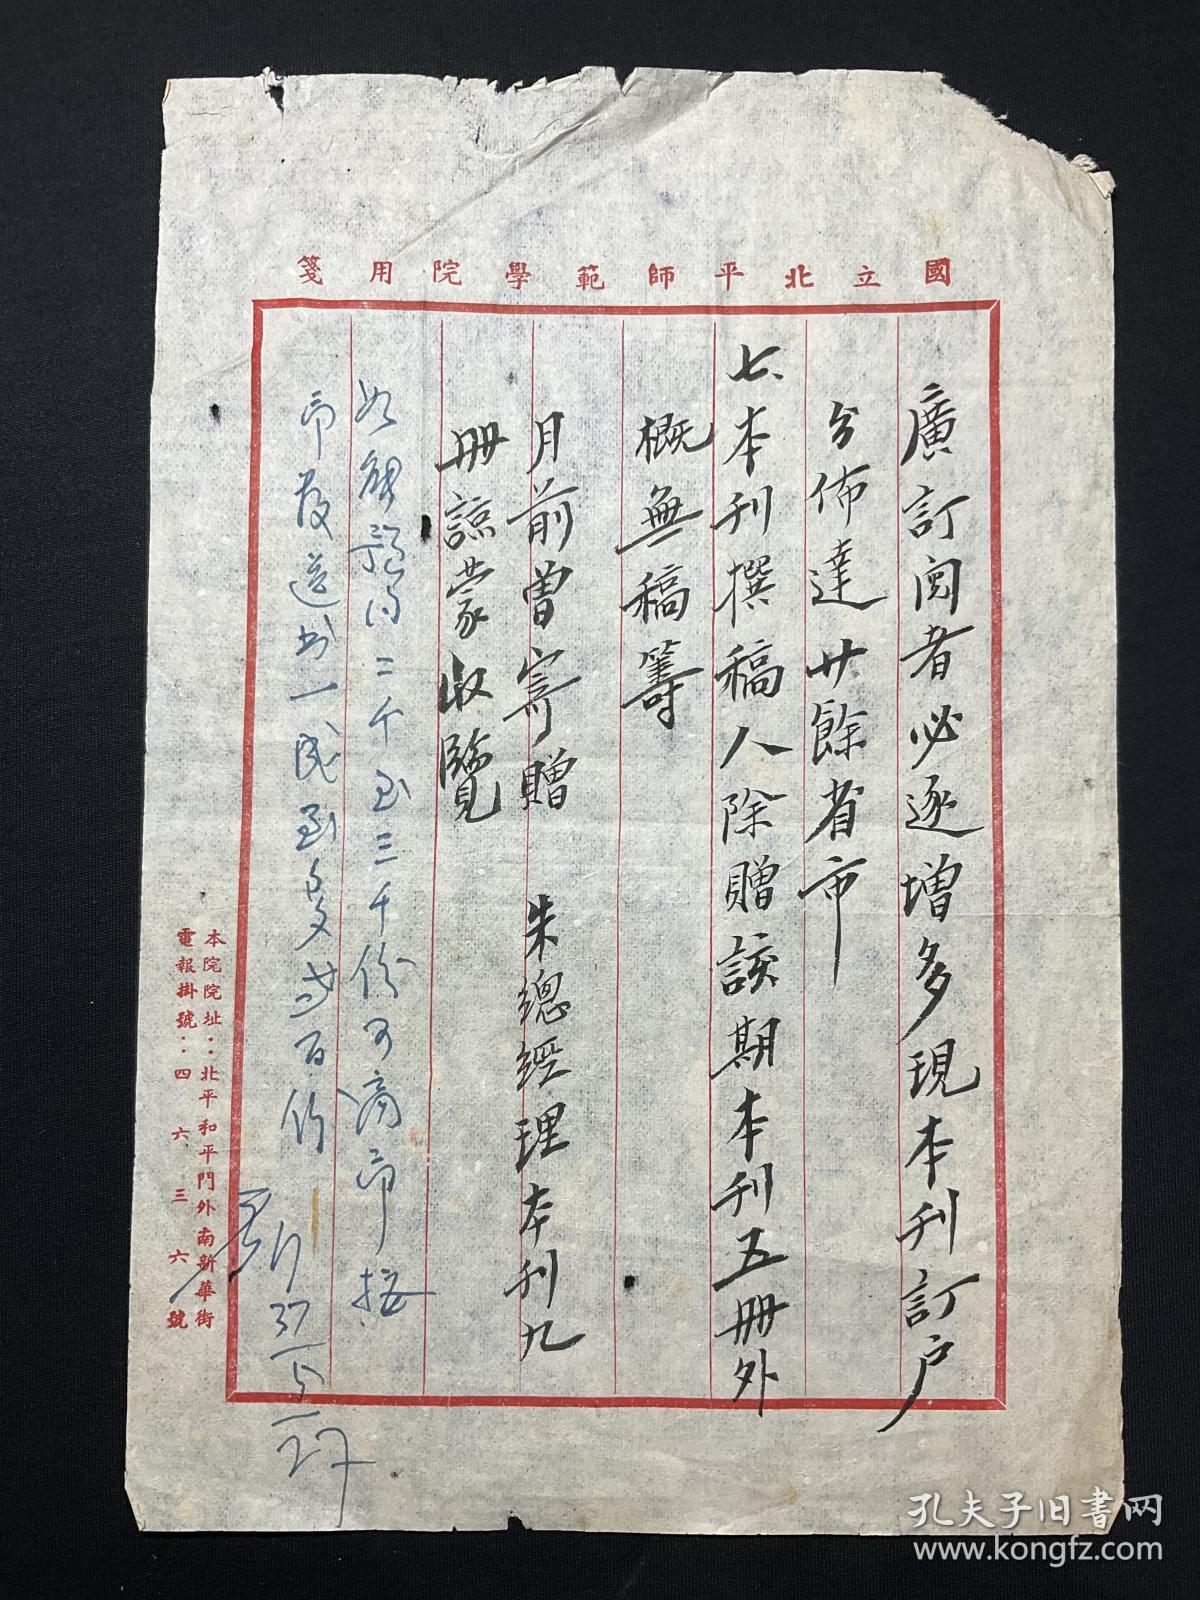 國立北平師範學院用箋
廣訂閱者必逐增多現本刊訂戶
分佈達廿餘省市
七、本刊撰稿人除贈該期本刊五冊外
概無稿籌
月前曾寄贈 朱總經理本刊九
冊諒蒙收覽
如能預約二千至三千份可商印
印 一 百份
37/5/27
本院院址：北平和平門外南新華街
電報掛號：四六三六號
孔夫子旧书网
www.kongfz.com